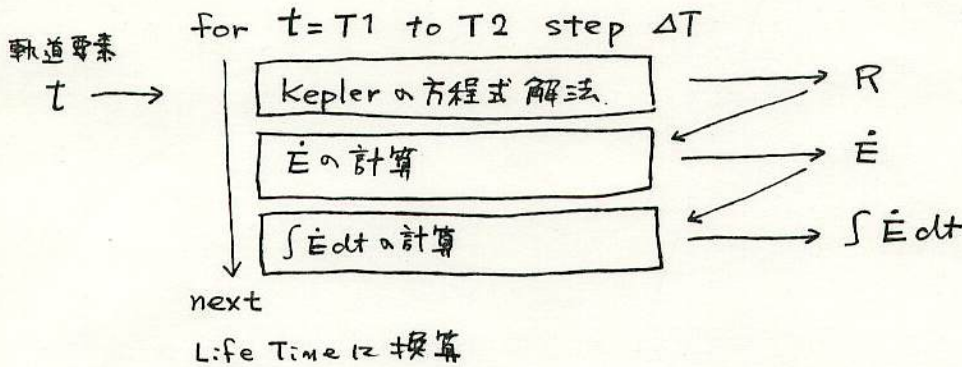 for t=T1 to T2 step ΔT
軌道要素
t
Keplerの方程式解法.
R
Ėの計算
Ė
∫Ėdtの計算
∫Ėdt
next
Life Timeに換算